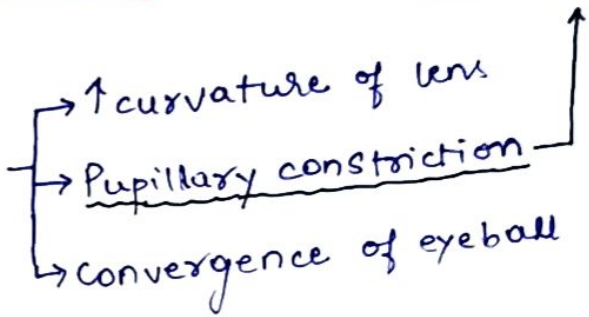 → ↑ curvature of lens
→ Pupillary constriction
→ convergence of eyeball